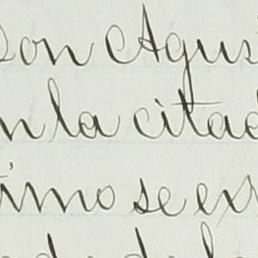 son Agus
n la citad
imo se ex